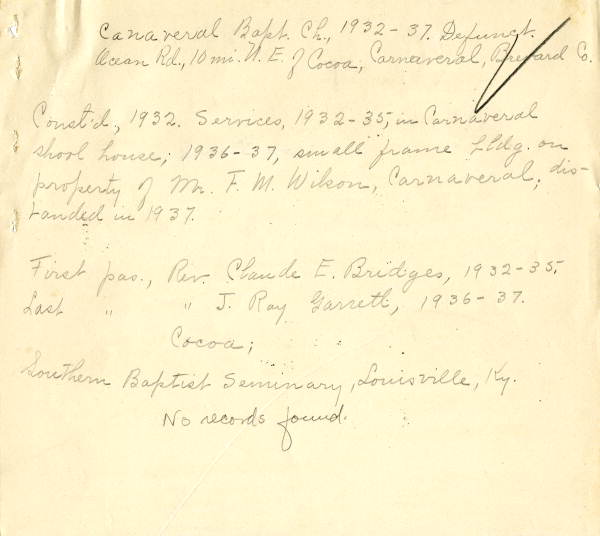 Canaveral Bapt. Ch., 1932-37. Defunct.
Ocean Rd., 10 mi. N. E. of Cocoa, Carnaveral, Brevard Co.
Const'd., 1932. Services, 1932-35, in Carnaveral
shool house; 1936-37, small frame bldg. on
property of Mr. F. M. Wilson, Carnaveral; dis-
banded in 1937.
First pas., Rev. Claude E. Bridges, 1932-35;
Last " " J. Ray Garrett, 1936-37.
Cocoa;
Southern Baptist Seminary, Louisville, Ky.
No records found.